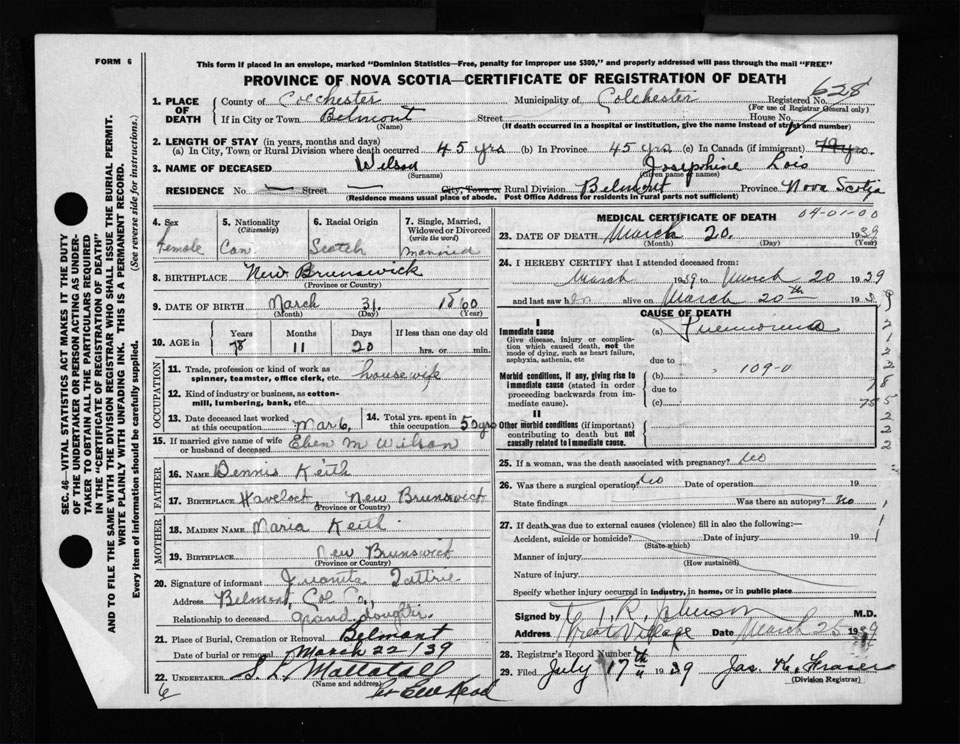 FORM 6
This form if placed in an envelope, marked "Dominion Statistics—Free, penalty for improper use $300," and properly addressed will pass through the mail "FREE"
PROVINCE OF NOVA SCOTIA—CERTIFICATE OF REGISTRATION OF DEATH
628
1. PLACE OF DEATH
County of Colchester Municipality of Colchester Registered No.
(For use of Registrar General only)
If in City or Town Belmont Street House No.
(Name) (If death occurred in a hospital or institution, give the name instead of street and number)
2. LENGTH OF STAY (in years, months and days)
(a) In City, Town or Rural Division where death occurred 45 yrs (b) In Province 45 yrs. (c) In Canada (if immigrant) 79 yrs.
3. NAME OF DECEASED Wilson Josephine Lois
(Surname) (Given name or names)
RESIDENCE No — Street — City, Town or Rural Division Belmont Province Nova Scotia
(Residence means usual place of abode. Post Office Address for residents in rural parts not sufficient)
4. Sex Female
5. Nationality (Citizenship) Can
6. Racial Origin Scotch
7. Single, Married, Widowed or Divorced (write the word) married
8. BIRTHPLACE New Brunswick
(Province or Country)
9. DATE OF BIRTH March 31. 1860
(Month) (Day) (Year)
10. AGE in Years 78 Months 11 Days 20 If less than one day old hrs. or min.
OCCUPATION
11. Trade, profession or kind of work as spinner, teamster, office clerk, etc. housewife
12. Kind of industry or business, as cotton-mill, lumbering, bank, etc.
13. Date deceased last worked at this occupation Mar 6,
14. Total yrs. spent in this occupation 50 yrs
15. If married give name of wife or husband of deceased Eben M Wilson
FATHER
16. NAME Dennis Keith
17. BIRTHPLACE Havelock New Brunswick
(Province or Country)
MOTHER
18. MAIDEN NAME Maria Keith
19. BIRTHPLACE New Brunswick
(Province or Country)
20. Signature of informant Juanita
Address Belmont, Col Co,
Relationship to deceased Grand daughter
21. Place of Burial, Cremation or Removal Belmont
Date of burial or removal March 22/39
22. UNDERTAKER
(Name and address)
6
MEDICAL CERTIFICATE OF DEATH
04-01-00
23. DATE OF DEATH March 20. 1939
(Month) (Day) (Year)
24. I HEREBY CERTIFY that I attended deceased from:
March 1939 to March 20 1939
and last saw her alive on March 20th 193
CAUSE OF DEATH
I
Immediate cause
Give disease, injury or complication which caused death, not the mode of dying, such as heart failure, asphyxia, asthenia, etc
(a) Pneumonia
due to
Morbid conditions, if any, giving rise to immediate cause (stated in order proceeding backwards from immediate cause).
(b) 109-0
due to
(c)
II
Other morbid conditions (if important) contributing to death but not causally related to immediate cause.
25. If a woman, was the death associated with pregnancy? No
26. Was there a surgical operation? No Date of operation 19
State findings Was there an autopsy? No
27. If death was due to external causes (violence) fill in also the following:—
Accident, suicide or homicide? Date of injury 19
(State which)
Manner of injury
(How sustained)
Nature of injury
Specify whether injury occurred in industry, in home, or in public place
Signed by T. R. Johnson M.D.
Address Great Village Date March 25 1939
28. Registrar's Record Number
29. Filed July 17th 1939 Jas. K. Fraser
(Division Registrar)
SEC. 46—VITAL STATISTICS ACT MAKES IT THE DUTY OF THE UNDERTAKER OR PERSON ACTING AS UNDERTAKER TO OBTAIN ALL THE PARTICULARS REQUIRED IN THE "CERTIFICATE OF REGISTRATION OF DEATH" AND TO FILE THE SAME WITH THE DIVISION REGISTRAR WHO SHALL ISSUE THE BURIAL PERMIT.
WRITE PLAINLY WITH UNFADING INK. THIS IS A PERMANENT RECORD.
Every item of information should be carefully supplied. (See reverse side for instructions.)